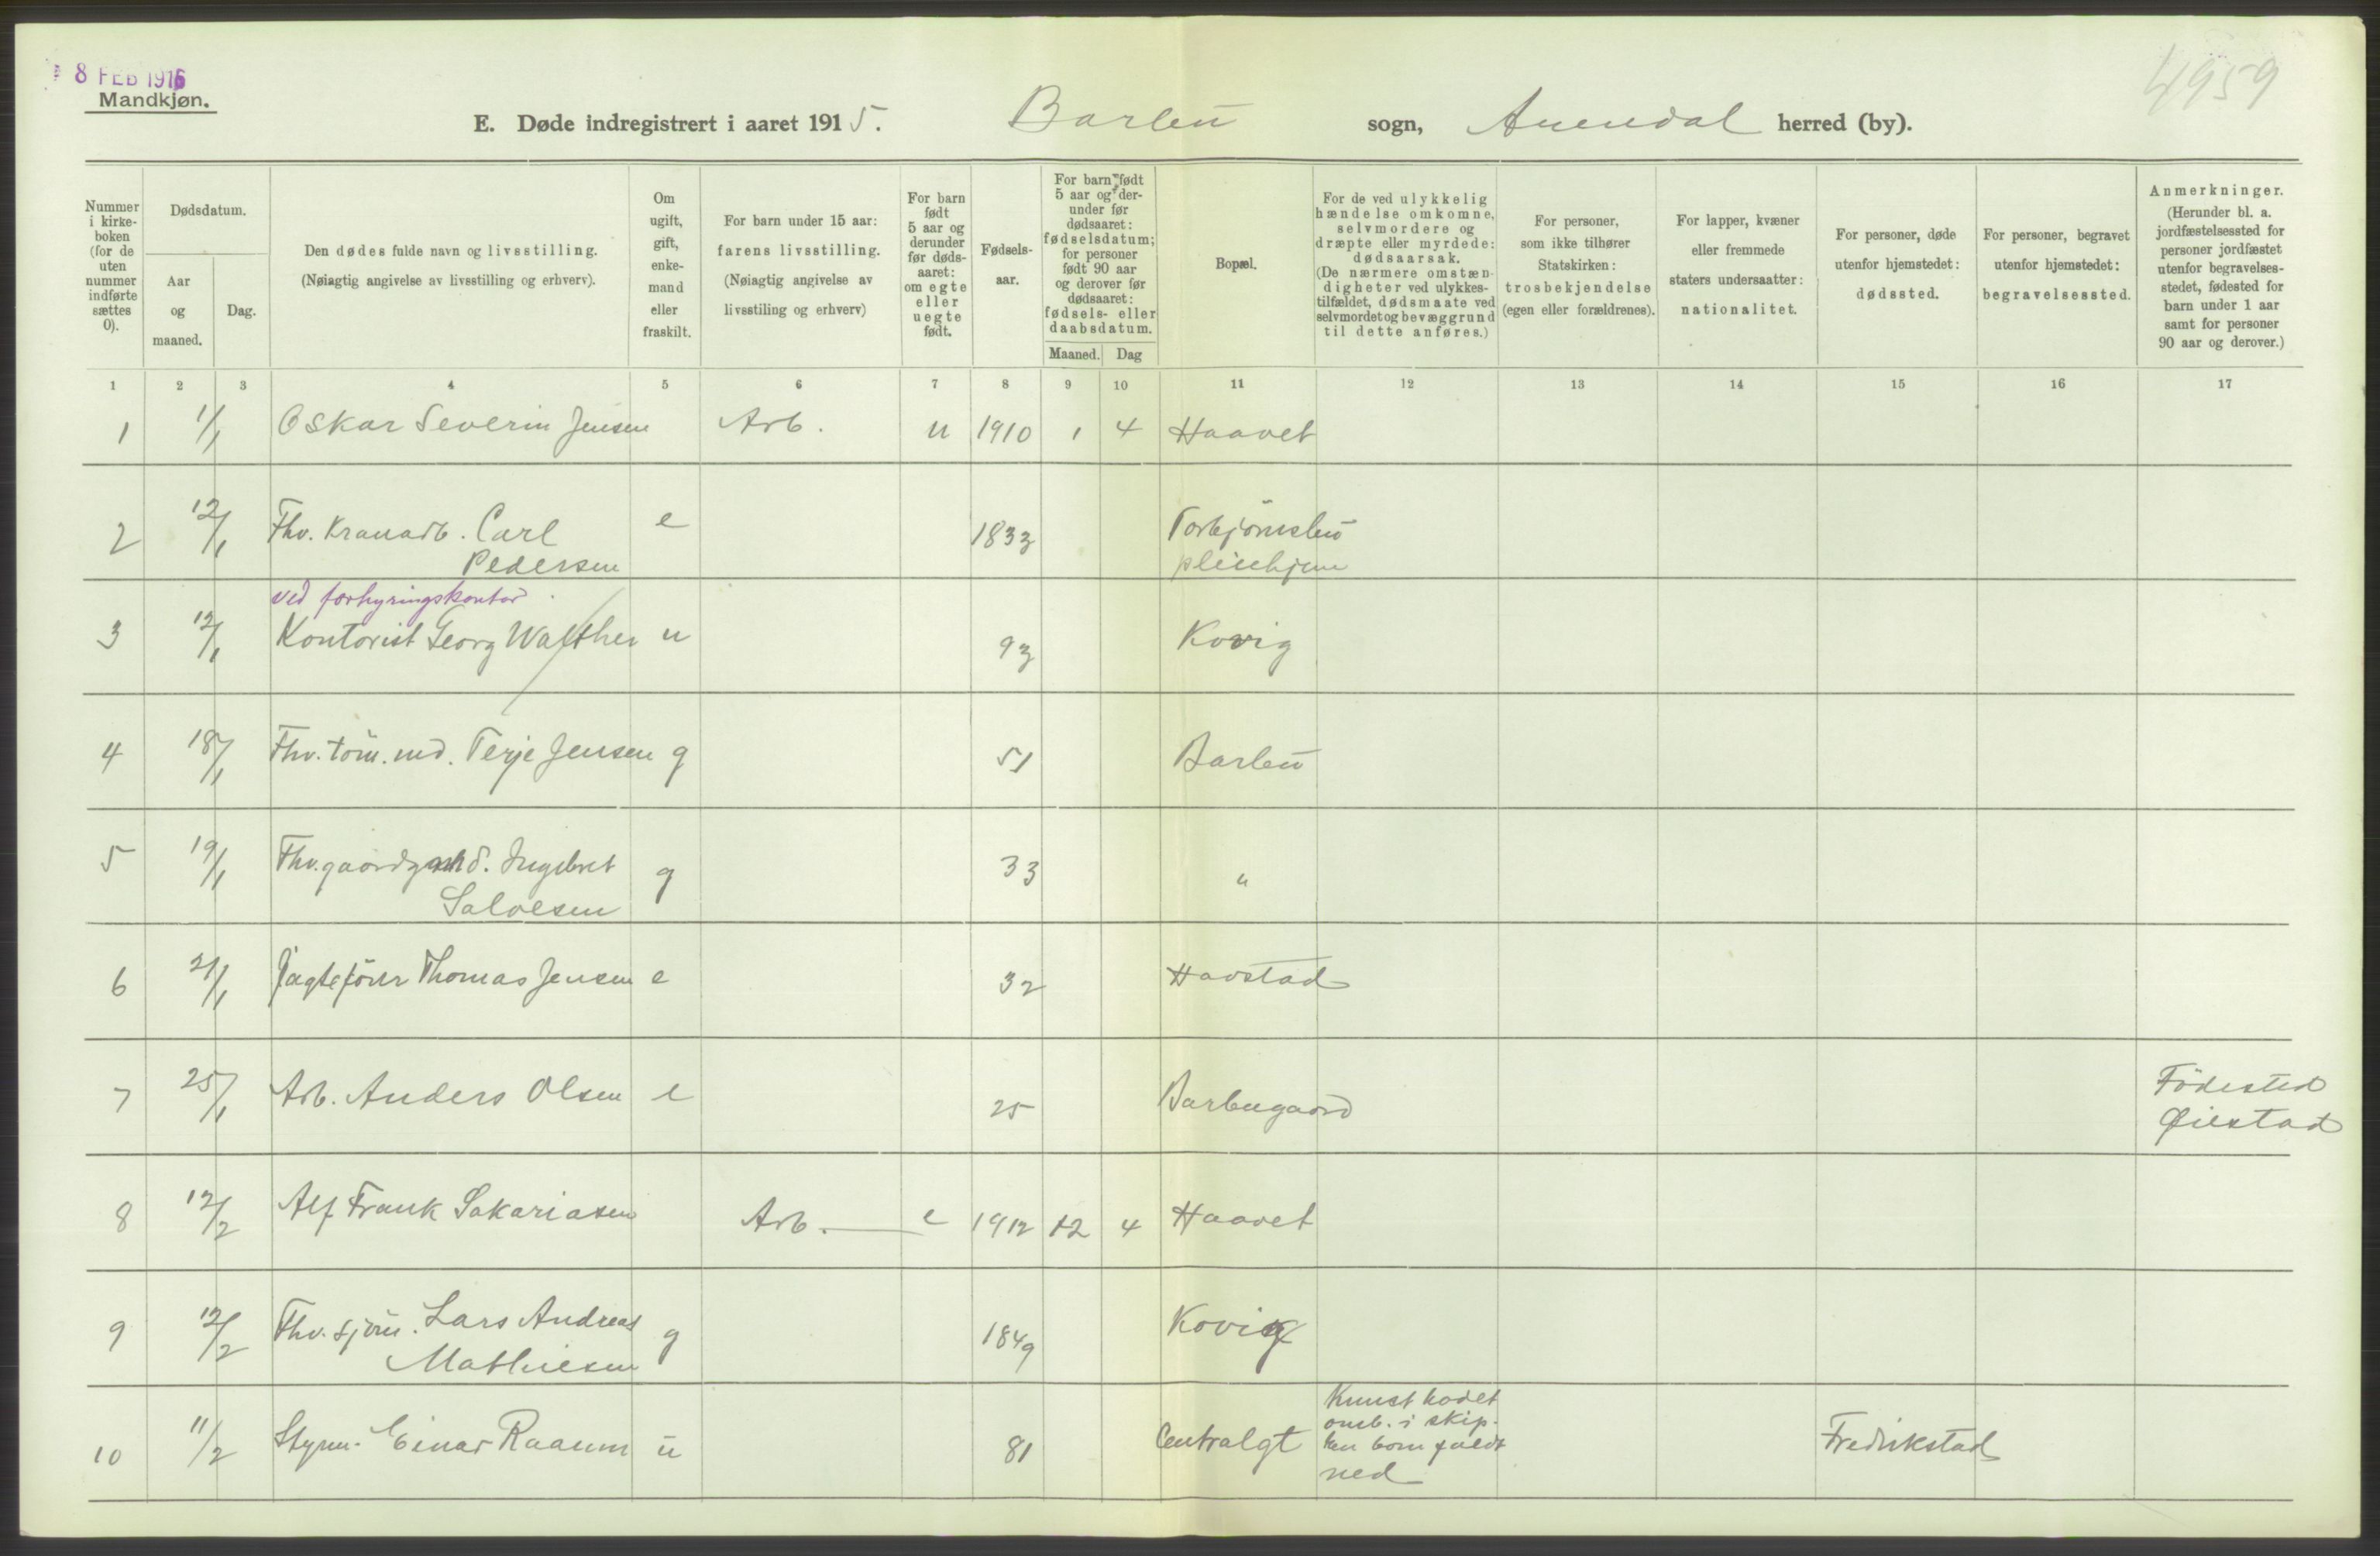 8 FEB 1916
Mandkjøn.
4959
E. Døde indregistrert i aaret 1915. Barbu sogn, Arendal herred (by).
Nummer i kirke-boken (for de uten nummer indførte sættes 0).
Dødsdatum.
Aar og maaned.
Dag.
Den dødes fulde navn og livsstilling.
(Nøiagtig angivelse av livsstilling og erhverv).
Om ugift, gift, enke-mand eller fraskilt.
For barn under 15 aar: farens livsstilling.
(Nøiagtig angivelse av livsstiling og erhverv)
For barn født 5 aar og derunder før døds-aaret: om egte eller uegte født.
Fødsels-aar.
For barn født 5 aar og der-under før dødsaaret: fødselsdatum; for personer født 90 aar og derover før dødsaaret: fødsels- eller daabsdatum.
Maaned. Dag
Bopæl.
For de ved ulykkelig hændelse omkomne, selvmordere og dræpte eller myrdede: dødsaarsak.
(De nærmere omstæn-digheter ved ulykkes-tilfældet, dødsmaate ved selvmordet og bevæggrund til dette anføres.)
For personer, som ikke tilhører Statskirken: trosbekjendelse (egen eller forældrenes).
For lapper, kvæner eller fremmede staters undersaatter: nationalitet.
For personer, døde utenfor hjemstedet: dødssted.
For personer, begravet utenfor hjemstedet: begravelsessted.
Anmerkninger.
(Herunder bl. a. jordfæstelsessted for personer jordfæstet utenfor begravelses-stedet, fødested for barn under 1 aar samt for personer 90 aar og derover.)
1 2 3 4 5 6 7 8 9 10 11 12 13 14 15 16 17
1 1/1 Oskar Severin Jensen Arb. u 1910 1 4 Haavet
2 12/1 Fhv. Kranarb. Carl e 1833 Torbjörnsbu
Pedersen pleiehjem
ved forhyringskontor
3 12/1 Kontorist Georg Walther u 93 Kovig
4 18/1 Fhv. töm.md. Terje Jensen g 51 Barbu
5 19/1 Fhv. gaardgmd. Ingebret g 33 "
Salvesen
6 21/1 Jagtefører Thomas Jensen e 32 Havstad
7 25/1 Arb. Anders Olsen e 25 Barbugaard Födested
Øiestad
8 12/2 Alf Frank Sakariasen Arb. e 1912 12 4 Haavet
9 12/2 Fhv. sjöm. Lars Andreas g 1849 Kovig
Mathiesen
10 11/2 Styrm. Einar Raaum u 81 Centralgt Knust hodet Fredrikstad
omb. i skip.
ken bom faldt
ned